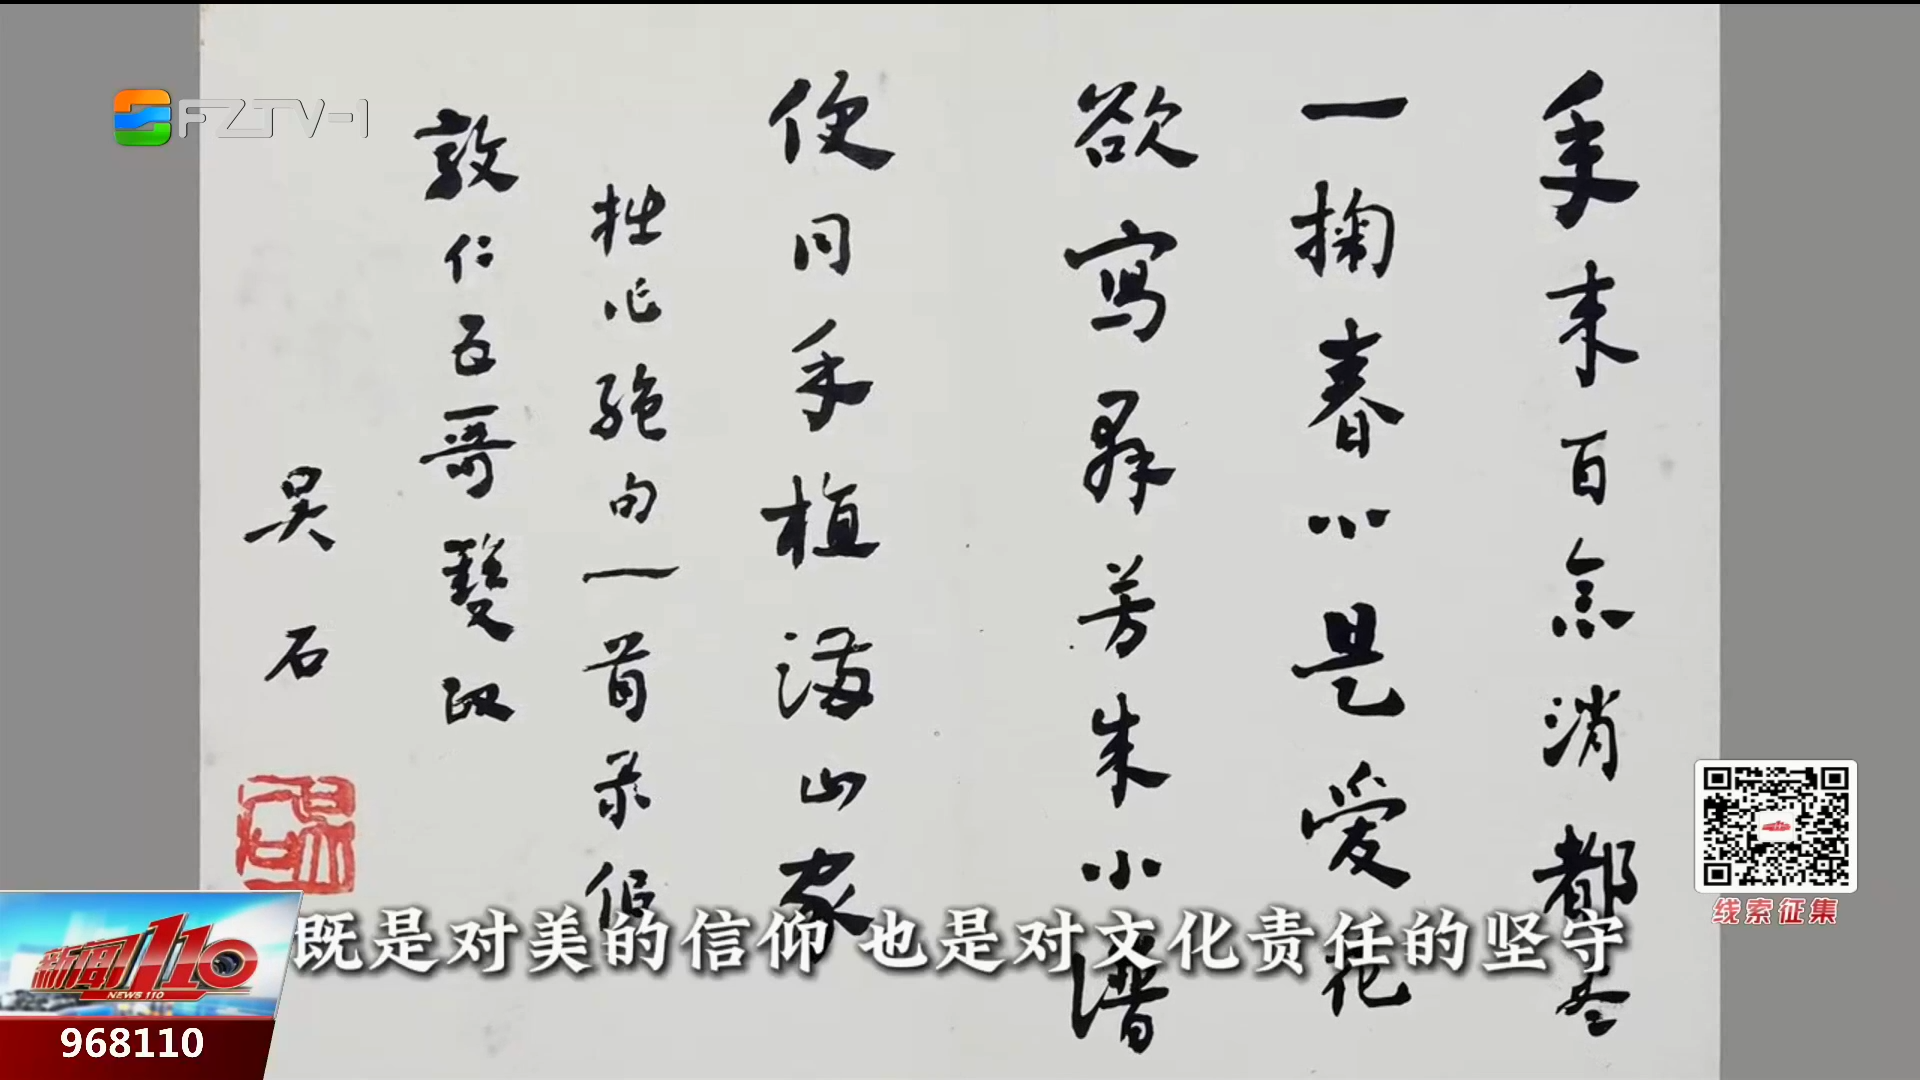 FZTV-1
年来百念消都尽
一掬春心是愛花
欲寫群芳小譜
便同手植滿山家
拙作絶句一首录似
敦仁五哥雙政
吴石
既是对美的信仰 也是对文化责任的坚守
线索征集
新闻110
NEWS 110
968110